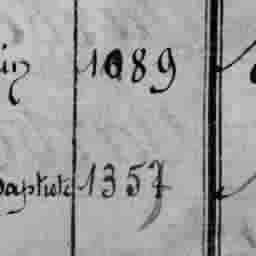 in 1089
baptiste 1357